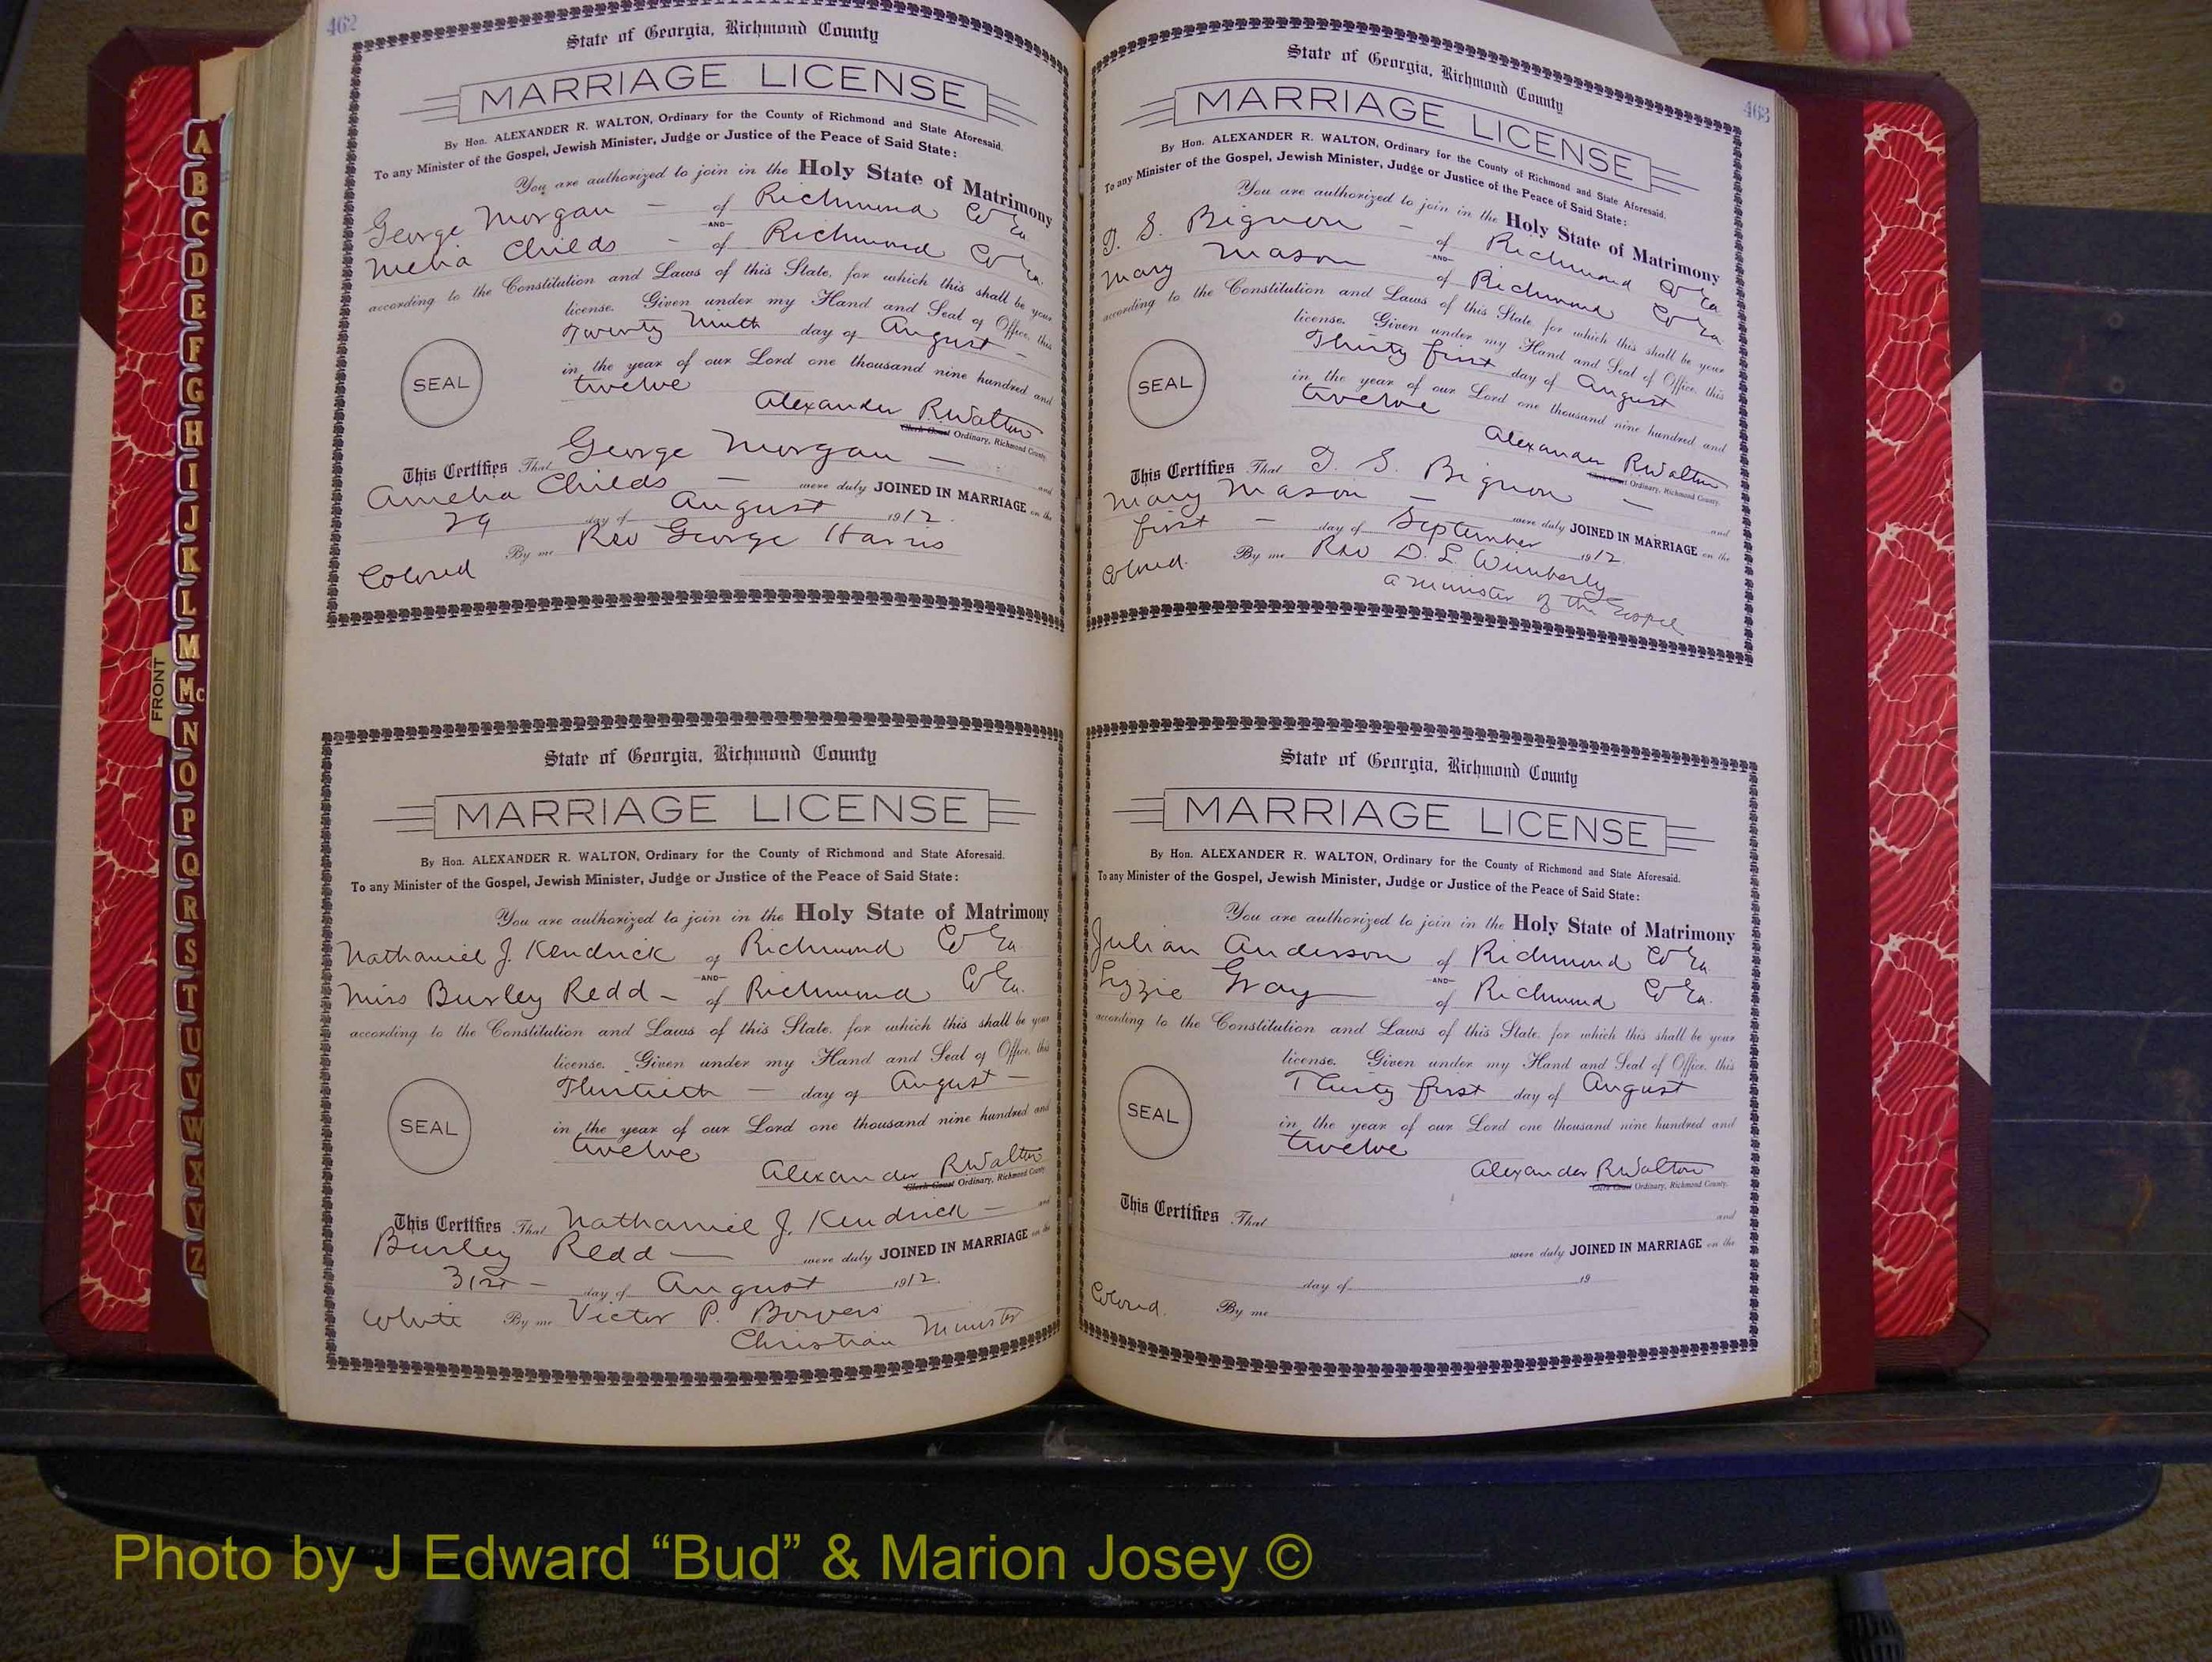 462
State of Georgia, Richmond County
MARRIAGE LICENSE
By Hon. ALEXANDER R. WALTON, Ordinary for the County of Richmond and State Aforesaid.
To any Minister of the Gospel, Jewish Minister, Judge or Justice of the Peace of Said State:
You are authorized to join in the Holy State of Matrimony
George Morgan - of Richmond Co Ga.
AND
Melia Childs - of Richmond Co Ga.
according to the Constitution and Laws of this State, for which this shall be your
license. Given under my Hand and Seal of Office, this
Twenty Ninth day of August -
SEAL
in the year of our Lord one thousand nine hundred and
twelve
Alexander R Walton
Clerk Court Ordinary, Richmond County
This Certifies That George Morgan - and
Amelia Childs - were duly JOINED IN MARRIAGE on the
29 day of August 1912.
By me Rev George Harris
Colored
State of Georgia, Richmond County
MARRIAGE LICENSE
By Hon. ALEXANDER R. WALTON, Ordinary for the County of Richmond and State Aforesaid.
To any Minister of the Gospel, Jewish Minister, Judge or Justice of the Peace of Said State:
You are authorized to join in the Holy State of Matrimony
Nathaniel J. Kendrick of Richmond Co Ga
AND
Miss Burley Redd - of Richmond Co Ga.
according to the Constitution and Laws of this State, for which this shall be your
license. Given under my Hand and Seal of Office, this
Thirtieth - day of August -
SEAL
in the year of our Lord one thousand nine hundred and
twelve
Alexander R Walton
Clerk Court Ordinary, Richmond County
This Certifies That Nathaniel J. Kendrick - and
Burley Redd - were duly JOINED IN MARRIAGE on the
31st - day of August 1912.
White By me Victor P. Bowers
Christian Minister
463
State of Georgia, Richmond County
MARRIAGE LICENSE
By Hon. ALEXANDER R. WALTON, Ordinary for the County of Richmond and State Aforesaid.
To any Minister of the Gospel, Jewish Minister, Judge or Justice of the Peace of Said State:
You are authorized to join in the Holy State of Matrimony
S. Bignon - of Richmond Co Ga
AND
Mary Mason of Richmond Co Ga
according to the Constitution and Laws of this State for which this shall be your
license. Given under my Hand and Seal of Office, this
Thirty first day of August
SEAL
in the year of our Lord one thousand nine hundred and
twelve
Alexander R Walton
Clerk Court Ordinary, Richmond County.
This Certifies That S. Bignon - and
Mary Mason - were duly JOINED IN MARRIAGE on the
first - day of September 1912.
Colored. By me Rev D. L. Wimberly
a minister of the Gospel
State of Georgia, Richmond County
MARRIAGE LICENSE
By Hon. ALEXANDER R. WALTON, Ordinary for the County of Richmond and State Aforesaid.
To any Minister of the Gospel, Jewish Minister, Judge or Justice of the Peace of Said State:
You are authorized to join in the Holy State of Matrimony
Julian Anderson of Richmond Co Ga
AND
Lizzie Gray of Richmond Co Ga.
according to the Constitution and Laws of this State, for which this shall be your
license. Given under my Hand and Seal of Office, this
Thirty first day of August
SEAL
in the year of our Lord one thousand nine hundred and
twelve
Alexander R Walton
Clerk Court Ordinary, Richmond County.
This Certifies That and
were duly JOINED IN MARRIAGE on the
day of 19
Colored. By me
FRONT
A
B
C
D
E
F
G
H
I
J
K
L
M
Mc
N
O
P
Q
R
S
T
U
V
W
X
Y
Z
Photo by J Edward “Bud” & Marion Josey ©